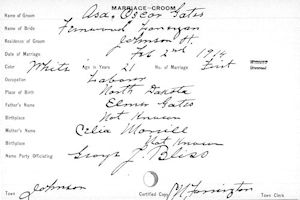 MARRIAGE-GROOM
Name of Groom Asa, Oscar Gates
Name of Bride Flanagan
Residence of Groom Johnson Vt.
Date of Marriage Feb 2nd 1914
Color White Age in Years 21 No. of Marriage First
Occupation Laborer
Place of Birth North Dakota
Father's Name Elmer Gates
Birthplace Not Known
Mother's Name Celia Morrill
Birthplace Not Known
Name Party Officiating George J. Bliss
Town Johnson Certified Copy Farrington Town Clerk